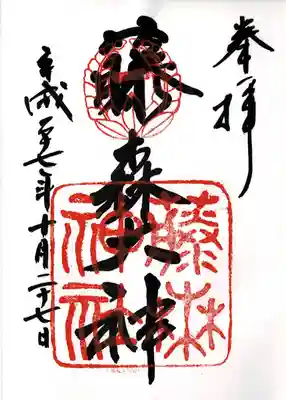 奉拝
藤森大神
平成二十七年十月二十七日
藤森
神社